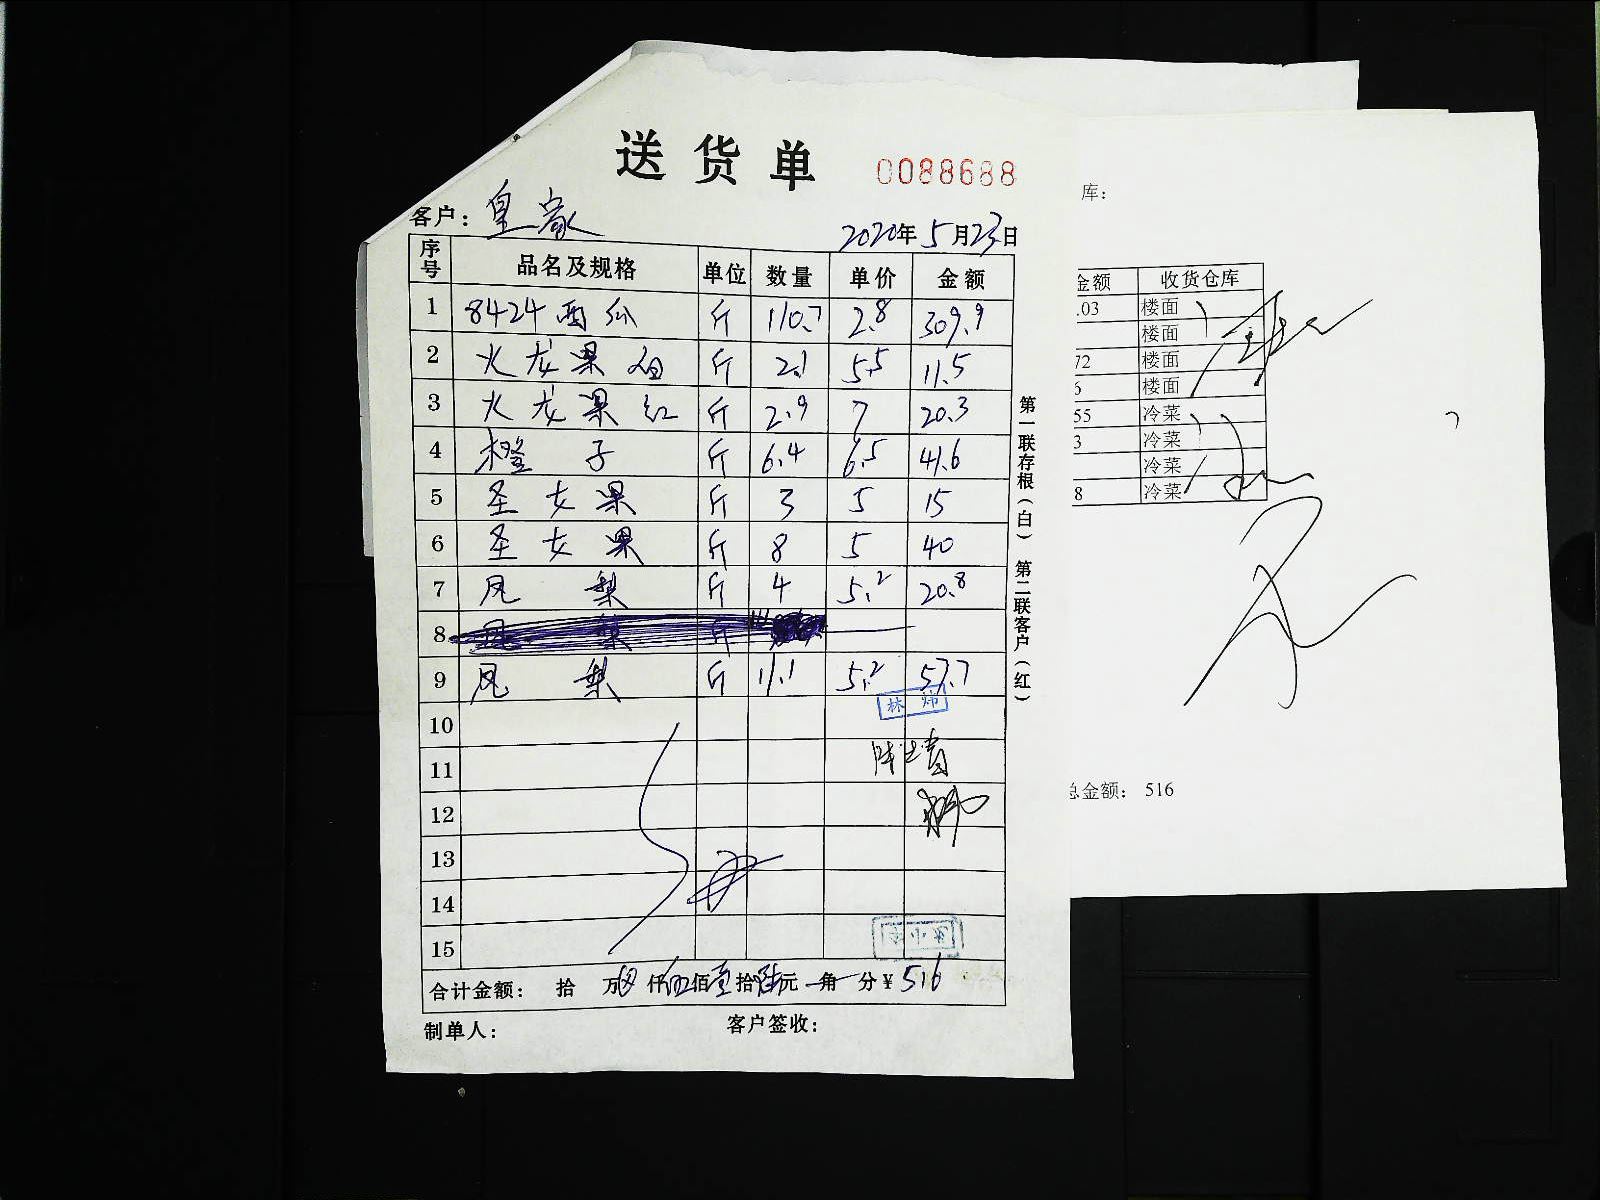 送货单 0088688
客户：皇家
2020年5月23日
序号 品名及规格 单位 数量 单价 金额
1 8424西瓜 斤 110.7 2.8 309.9
2 火龙果 白 斤 2.1 5.5 11.5
3 火龙果 红 斤 2.9 7 20.3
4 橙子 斤 6.4 6.5 41.6
5 圣女果 斤 3 5 15
6 圣女果 斤 8 5 40
7 凤梨 斤 4 5.2 20.8
8
9 凤梨 斤 11.1 5.2 57.7
林
10
11
12
13
14
15
合计金额： 拾 万 仟伍佰壹拾陆元 角 分¥516
制单人： 客户签收：
第一联存根（白） 第二联客户（红）
库：
金额 收货仓库
.03 楼面
楼面
72 楼面
6 楼面
55 冷菜
3 冷菜
冷菜
8 冷菜
总金额： 516